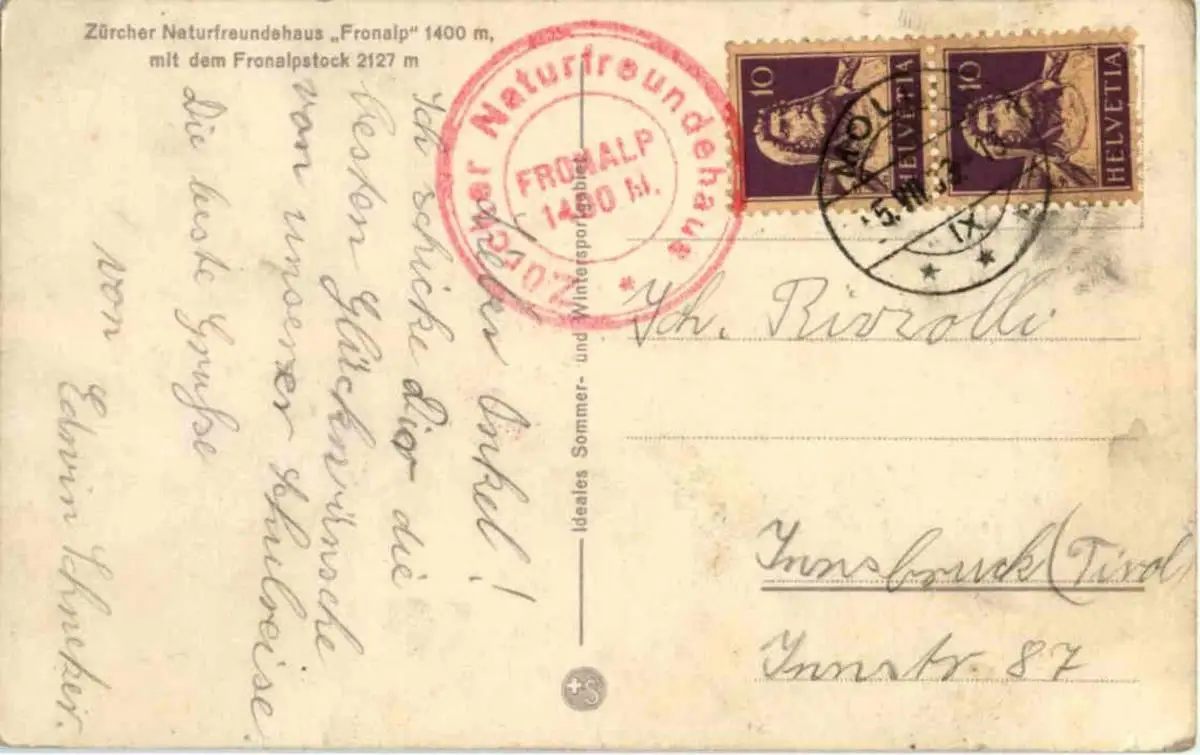 Zürcher Naturfreundehaus „Fronalp" 1400 m,
mit dem Fronalpstock 2127 m
Lieber Onkel!
Ich schicke dir die
besten Glückwünsche
von unserer Schulreise
Die beste Grüsse
von
Edwin
Ideales Sommer- und Wintersportgebiet
Zürcher Naturfreundehaus *
FRONALP
1400 M.
10 HELVETIA
10 HELVETIA
MOL
5.VII.33.
IX
* *
Joh.
Innsbruck (Tirol)
Innstr. 87